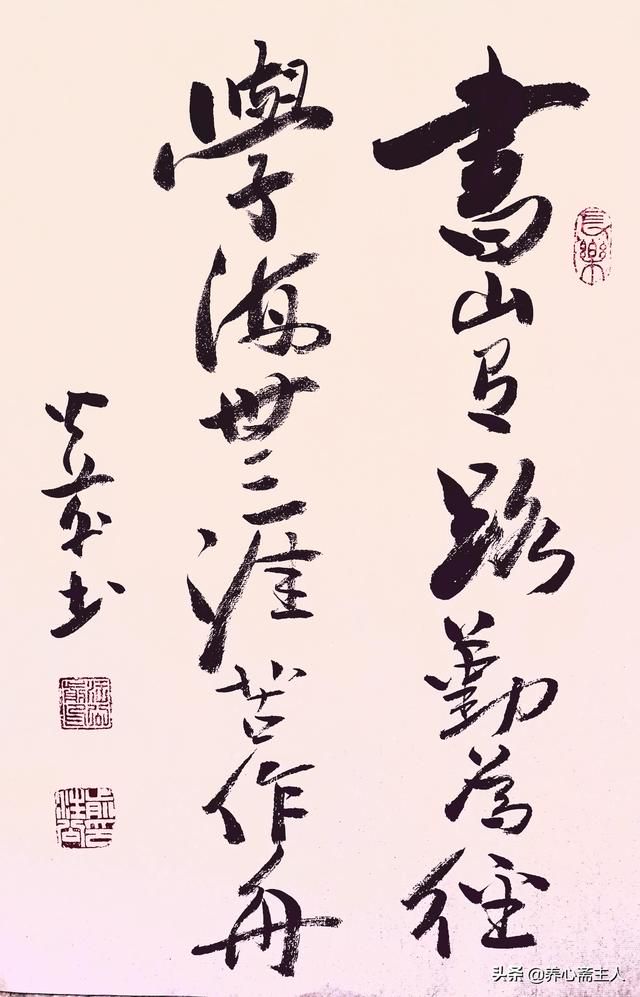 書山有路勤為徑
學海無涯苦作舟
書
長樂
头条 @养心斋主人